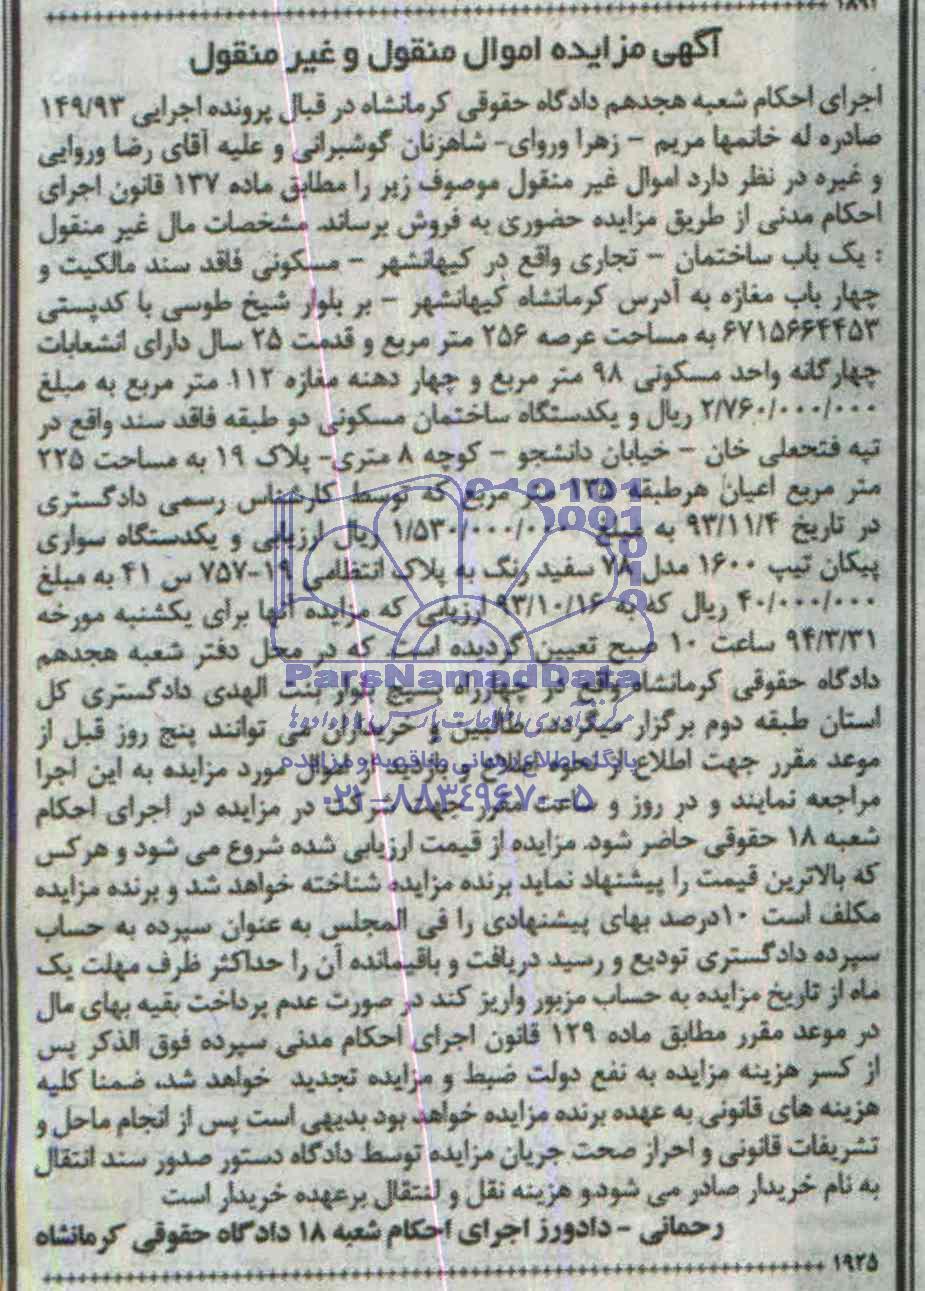 ۱۸۹۲
آگهی مزایده اموال منقول و غیر منقول
اجرای احکام شعبه هجدهم دادگاه حقوقی کرمانشاه در قبال پرونده اجرایی ۱۴۹/۹۳
صادره له خانمها مریم - زهرا وروای- شاهزنان گوشبرانی و علیه آقای رضا وروایی
و غیره در نظر دارد اموال غیر منقول موصوف زیر را مطابق ماده ۱۳۷ قانون اجرای
احکام مدنی از طریق مزایده حضوری به فروش برساند. مشخصات مال غیر منقول
: یک باب ساختمان - تجاری واقع در کیهانشهر - مسکونی فاقد سند مالکیت و
چهار باب مغازه به آدرس کرمانشاه کیهانشهر - بر بلوار شیخ طوسی با کدپستی
۶۷۱۵۶۶۴۴۵۳ به مساحت عرصه ۲۵۶ متر مربع و قدمت ۲۵ سال دارای انشعابات
چهارگانه واحد مسکونی ۹۸ متر مربع و چهار دهنه مغازه ۱۱۲ متر مربع به مبلغ
۲/۷۶۰/۰۰۰/۰۰۰ ریال و یکدستگاه ساختمان مسکونی دو طبقه فاقد سند واقع در
تپه فتحعلی خان - خیابان دانشجو - کوچه ۸ متری- پلاک ۱۹ به مساحت ۲۲۵
متر مربع اعیان هرطبقه ۱۳۵ متر مربع که توسط کارشناس رسمی دادگستری
در تاریخ ۹۳/۱۱/۴ به مبلغ ۱/۵۳۰/۰۰۰/۰۰۰ ریال ارزیابی و یکدستگاه سواری
پیکان تیپ ۱۶۰۰ مدل ۷۸ سفید رنگ به پلاک انتظامی ۱۹-۷۵۷ س ۴۱ به مبلغ
۴۰/۰۰۰/۰۰۰ ریال که به ۹۳/۱۰/۱۶ ارزیابی که مزایده آنها برای یکشنبه مورخه
۹۴/۳/۳۱ ساعت ۱۰ صبح تعیین گردیده است. که در محل دفتر شعبه هجدهم
دادگاه حقوقی کرمانشاه واقع در چهارراه بسیج بلوار بنت الهدی دادگستری کل
استان طبقه دوم برگزار میگردد. طالبین و خریداران می توانند پنج روز قبل از
موعد مقرر جهت اطلاع از نحوه اطلاع و بازدید از اموال مورد مزایده به این اجرا
مراجعه نمایند و در روز و ساعت مقرر جهت شرکت در مزایده در اجرای احکام
شعبه ۱۸ حقوقی حاضر شود. مزایده از قیمت ارزیابی شده شروع می شود و هرکس
که بالاترین قیمت را پیشنهاد نماید برنده مزایده شناخته خواهد شد و برنده مزایده
مکلف است ۱۰درصد بهای پیشنهادی را فی المجلس به عنوان سپرده به حساب
سپرده دادگستری تودیع و رسید دریافت و باقیمانده آن را حداکثر ظرف مهلت یک
ماه از تاریخ مزایده به حساب مزبور واریز کند در صورت عدم پرداخت بقیه بهای مال
در موعد مقرر مطابق ماده ۱۲۹ قانون اجرای احکام مدنی سپرده فوق الذکر پس
از کسر هزینه مزایده به نفع دولت ضبط و مزایده تجدید خواهد شد، ضمنا کلیه
هزینه های قانونی به عهده برنده مزایده خواهد بود بدیهی است پس از انجام ماحل و
تشریفات قانونی و احراز صحت جریان مزایده توسط دادگاه دستور صدور سند انتقال
به نام خریدار صادر می شود.و هزینه نقل و انتقال برعهده خریدار است
رحمانی - دادورز اجرای احکام شعبه ۱۸ دادگاه حقوقی کرمانشاه
۱۹۲۵
ParsNamadData
مرکز فرآوری اطلاعات پارس نماد داده ها
پایگاه اطلاع رسانی مناقصه و مزایده
۰۲۱-۸۸۳۴۹۶۷۰-۵